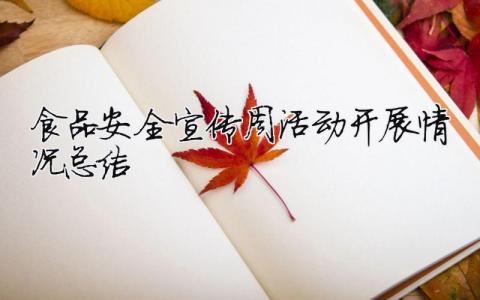 食品安全宣传周活动开展情
况总结